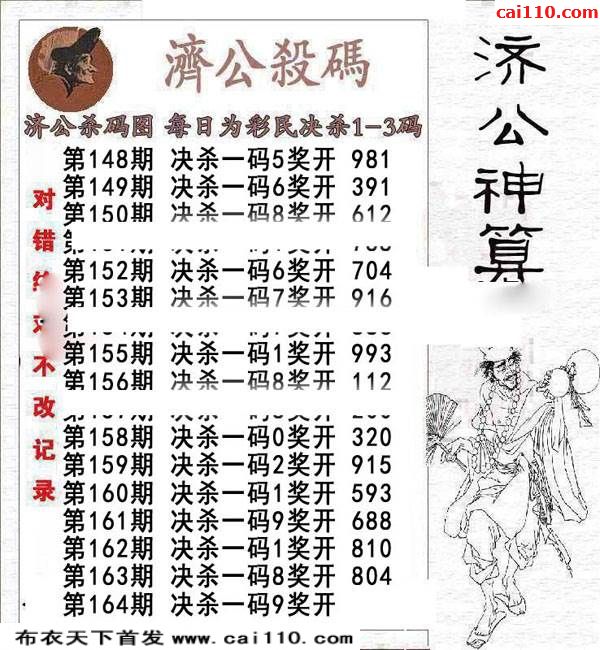 cai110.com
濟公殺碼
济公杀码图 每日为彩民决杀1-3码
第148期 决杀一码5奖开 981
第149期 决杀一码6奖开 391
第150期 决杀一码8奖开 612
第152期 决杀一码6奖开 704
第153期 决杀一码7奖开 916
第155期 决杀一码1奖开 993
第156期 决杀一码8奖开 112
第158期 决杀一码0奖开 320
第159期 决杀一码2奖开 915
第160期 决杀一码1奖开 593
第161期 决杀一码9奖开 688
第162期 决杀一码1奖开 810
第163期 决杀一码8奖开 804
第164期 决杀一码9奖开
对错
不改记录
济公神算
布衣天下首发 www.cai110.com